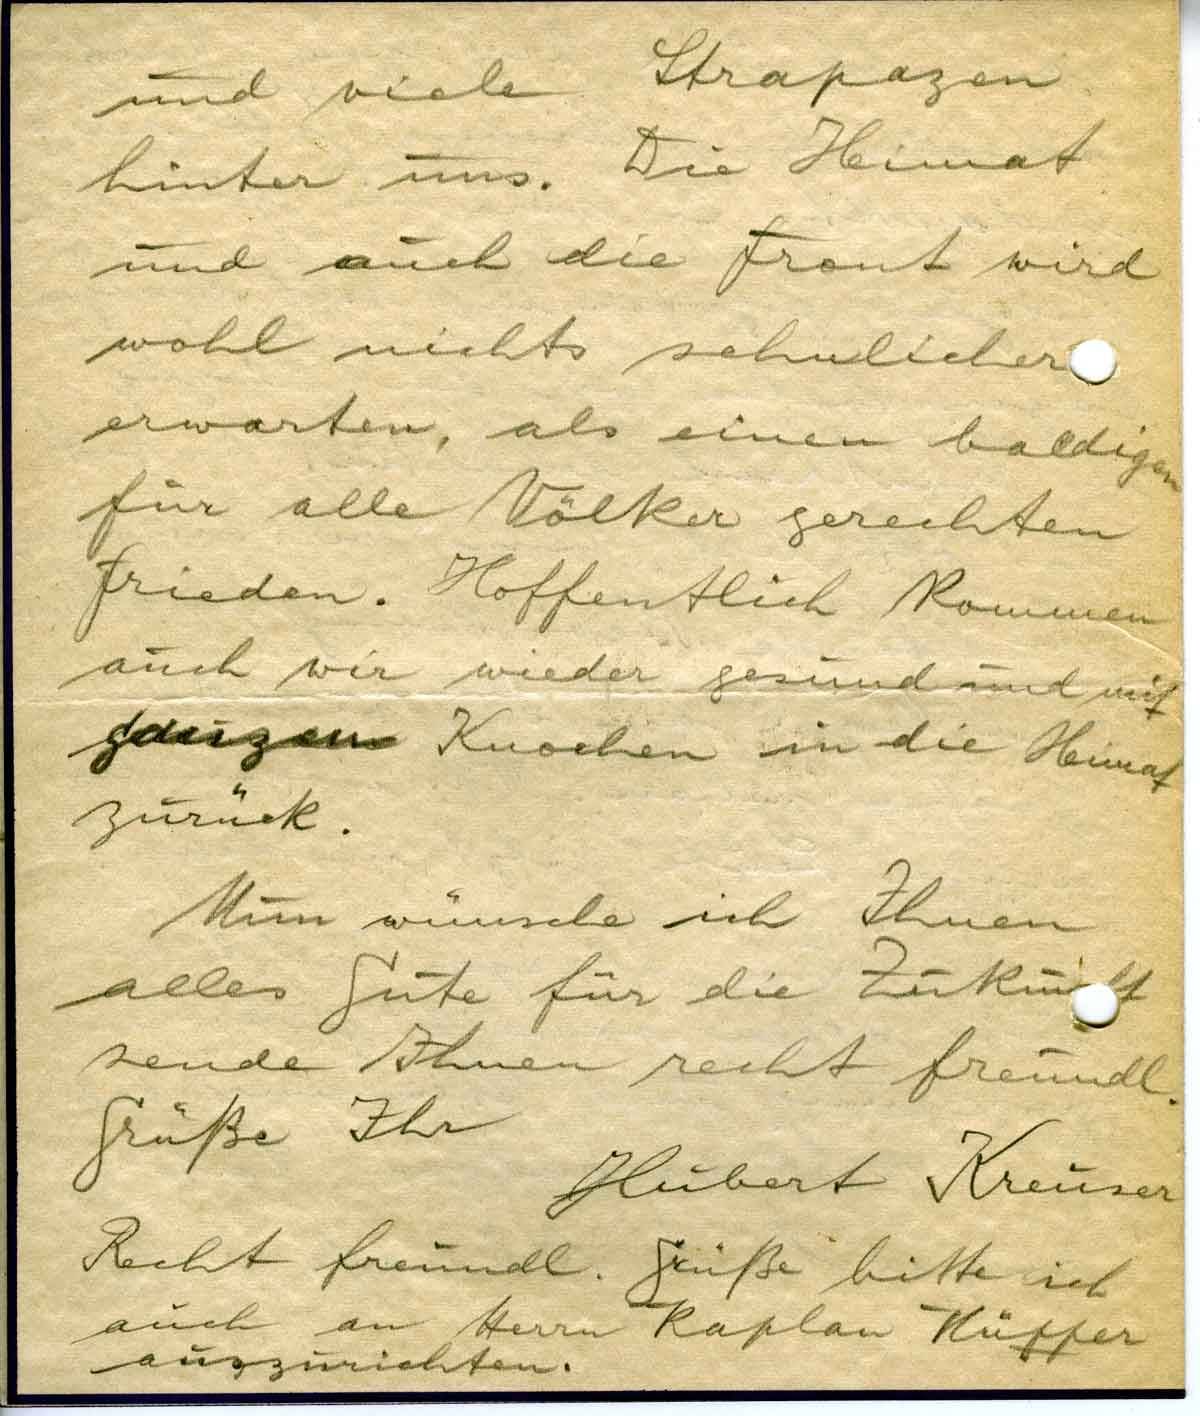 und viele Strapazen
hinter uns. Die Heimat
und auch die Front wird
wohl nichts sehnlicher
erwarten, als einen baldigen
für alle Völker gerechten
Frieden. Hoffentlich kommen
auch wir wieder gesund und mit
ganzen Knochen in die Heimat
zurück.
Nun wünsche ich Ihnen
alles Gute für die Zukunft
sende Ihnen recht freundl.
Grüße Ihr
Hubert Kreuser
Recht freundl. Grüße bitte ich
auch an Herrn Kaplan Küpper
auszurichten.